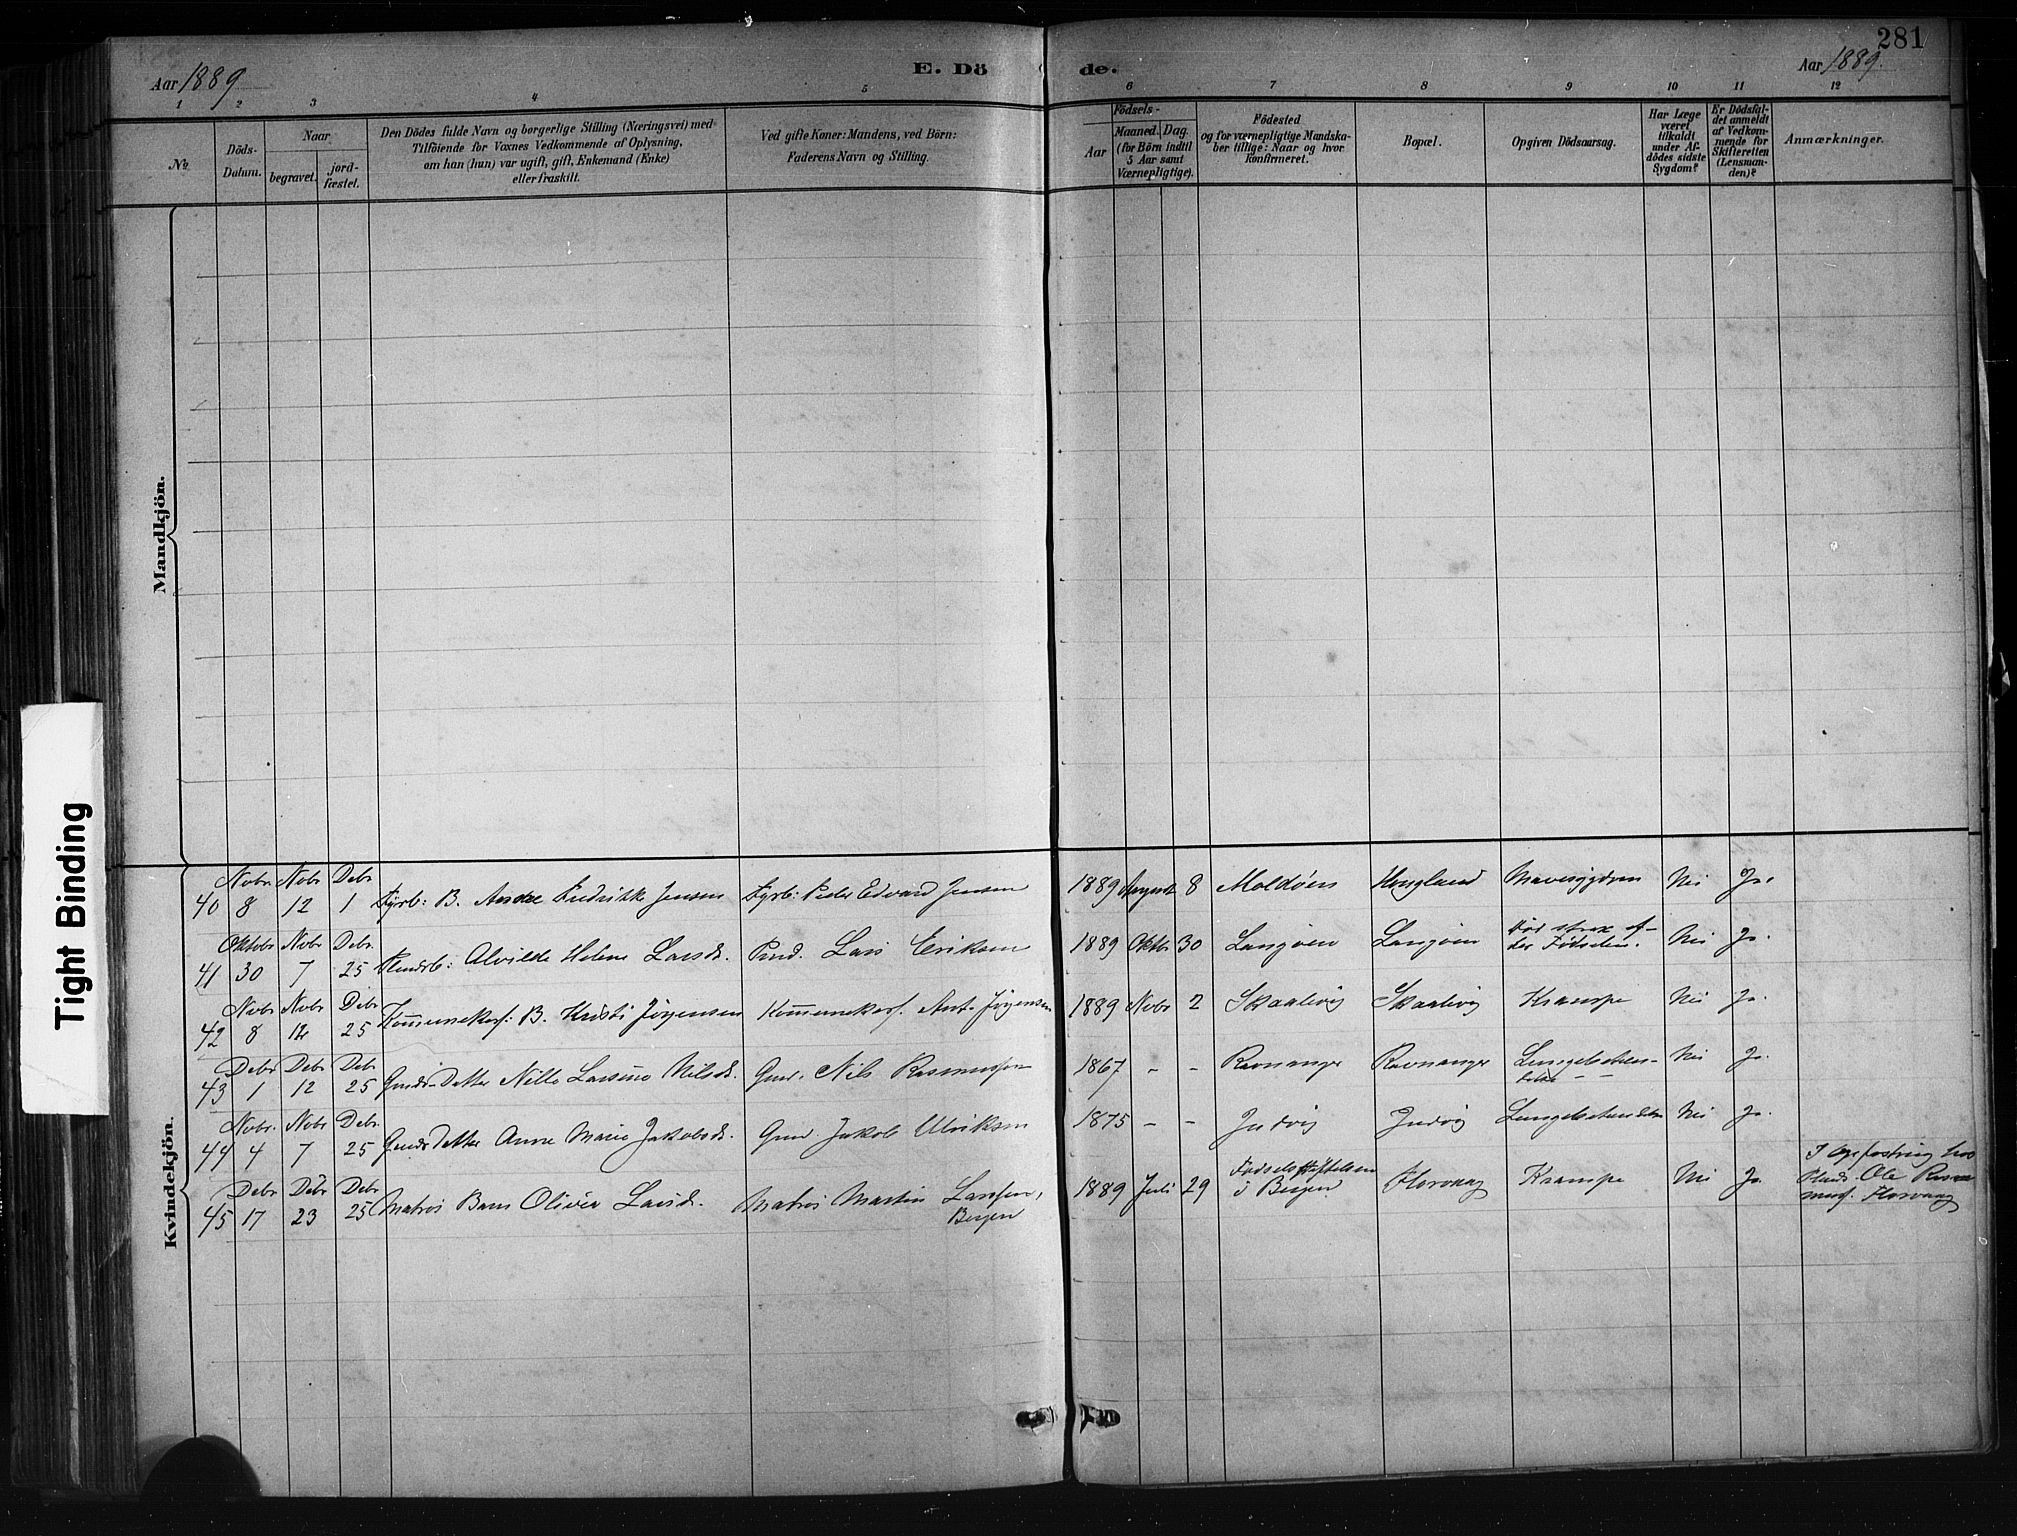 281
Aar 1889
E. Dö
de.
Aar 1889.
1 2 3 4 5 6 7 8 9 10 11 12
No
Döds-
Datum.
Naar
begravet.
jord-
fæstet.
Den Dödes fulde Navn og borgerlige Stilling (Næringsvei) med
Tilföiende for Voxnes Vedkommende af Oplysning,
om han (hun) var ugift, gift, Enkemand (Enke)
eller fraskilt.
Ved gifte Koner: Mandens, ved Börn:
Faderens Navn og Stilling.
Födsels-
Aar
Maaned. Dag.
(for Börn indtil
5 Aar samt
Værnepligtige).
Födested
og for værnepligtige Mandska-
ber tillige: Naar og hvor
konfirmeret.
Bopæl.
Opgiven Dödsaarsag.
Har Læge
været
tilkaldt
under Af-
dödes sidste
Sygdom?
Er Dödsfal-
det anmeldt
af Vedkom-
mende for
Skifteretten
(Lensman-
den)?
Anmærkninger.
Mandkjön.
Kvindekjön.
Tight Binding
40 Nobr 8 Nobr 12 Debr 1 Fyrb: B. Fredrikke Jensen Fyrb: Peder Edvard Jensen 1889 August 8 Moldöen Hougland Mavesygdom Nei Ja.
41 Oktobr 30 Nobr 7 Debr 25 Alvilde Helene Larsd. Lars Eriksen 1889 Oktbr 30 Langöen Langöen Död strax ef-
ter Födselen. Nei Ja.
42 Nobr 8 Nobr 12 Debr 25 B. Kristi Jörgensen Ant. Jörgensen 1889 Nobr 2 Skaalevig Skaalevig Krampe Nei Ja.
43 Debr 1 Debr 12 Debr 25 Gmds Datter Nille Larsine Nilsd. Gmd. Nils Rasmussen 1867 - - Ravnanger Ravnanger Nei Ja.
44 Nobr. 4 Nobr 7 Debr 25 Gmds Datter Anne Marie Jakobsd. Gmd Jakob Ulriksen 1875 - - Indvig Indvig Nei Ja.
45 Debr 17 Debr 23 Debr 25 Matros Barn Oliver Larsd. Matros Martin Larssen,
Bergen 1889 Juli 29 Födselsstiftelsen
i Bergen Florvaag Krampe Nei Ja. I Opfostring hos
Ole Rasm
Florvaag